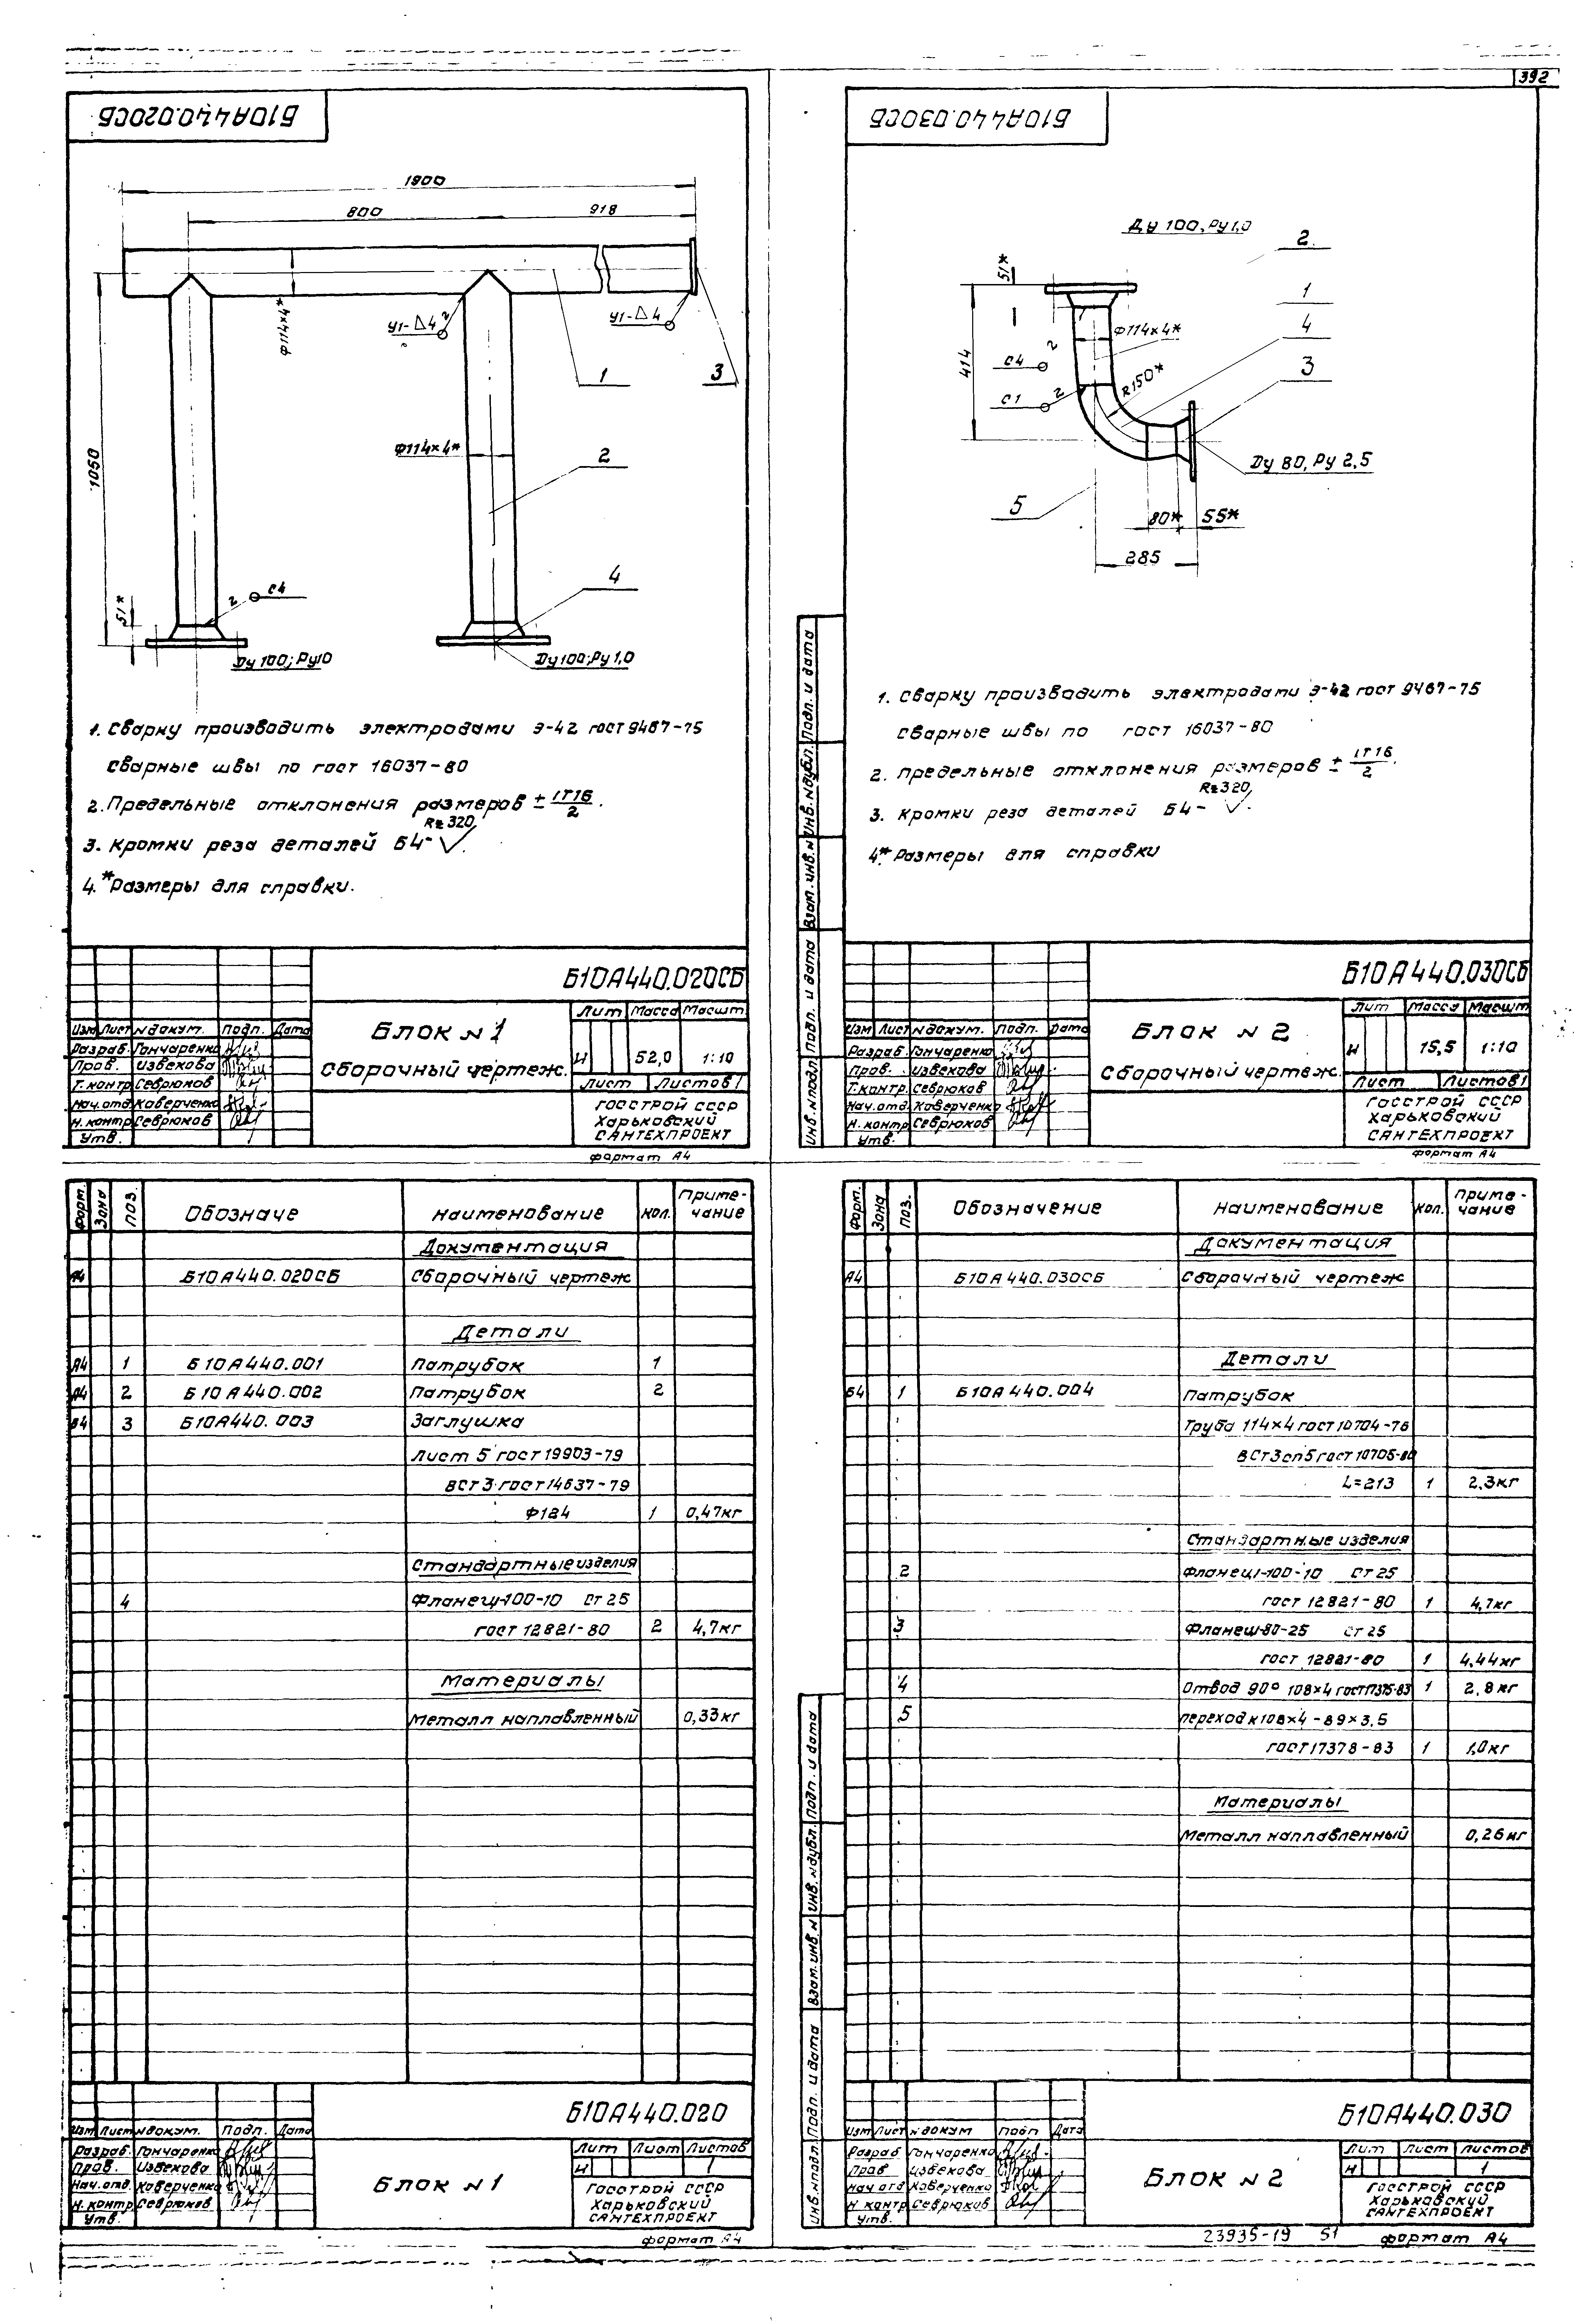 392
Б10А440.020СБ
1900
800 918
1050
Ф114×4*
У1-△4
У1-△4
1
3
Ф114×4*
2
4
51*
2
С4
Ду 100; Ру10
Ду100; Ру 1,0
1. Сварку производить электродами Э-42 гост 9467-75
сварные швы по гост 16037-80
2. Предельные отклонения размеров ± IT16/2.
3. Кромки реза деталей Б4- Rz320
4.*Размеры для справки.
Б10А440.020СБ
Изм Лист N докум. Подп. Дата
Разраб. Гончаренко
Пров. Извекова
Т.контр. Севрюков
Нач.отд. Каверченко
Н.контр Севрюков
Утв.
Блок N 1
Сборочный чертеж.
Лит Масса Масшт
И 52,0 1:10
Лист Листов 1
ГОССТРОЙ СССР
Харьковский
САНТЕХПРОЕКТ
формат А4
Б10А440.030СБ
Ду 100, Ру1,0
2
51*
1
Ф114×4*
4
2
С4
414
R150*
3
С1
2
Ду 80, Ру 2,5
5
80* 55*
285
1. Сварку производить электродами Э-42 гост 9467-75
сварные швы по гост 16037-80
2. предельные отклонения размеров ± IT16/2.
3. Кромки реза деталей Б4- Rz320
4.* Размеры для справки
Инв. N подл. Подп. и дата Взам. инв. N Инв. N дубл. Подп. и дата
Б10А440.030СБ
Изм Лист N докум. Подп. Дата
Разраб. Гончаренко
Пров. Извекова
Т.контр. Севрюков
Нач.отд. Каверченко
Н.контр Севрюков
Утв.
Блок N 2
Сборочный чертеж.
Лит Масса Масшт
И 15,5 1:10
Лист Листов 1
ГОССТРОЙ СССР
Харьковский
САНТЕХПРОЕКТ
формат А4
Форм. Зона Поз. Обозначе Наименование Кол. Приме-
чание
Документация
А4 Б10А440.020СБ Сборочный чертеж
Детали
А4 1 Б10А440.001 Патрубок 1
А4 2 Б10А440.002 Патрубок 2
Б4 3 Б10А440.003 Заглушка
Лист 5 гост 19903-79
ВСт3 гост 14637-79
Ф124 1 0,47кг
Стандартные изделия
4 Фланец 1-100-10 Ст 25
гост 12821-80 2 4,7кг
Материалы
Металл наплавленный 0,33кг
Б10А440.020
Изм Лист N докум. Подп. Дата
Разраб. Гончаренко
Пров. Извекова
Нач.отд. Каверченко
Н.контр Севрюков
Утв.
Блок N 1
Лит Лист Листов
И 1
ГОССТРОЙ СССР
Харьковский
САНТЕХПРОЕКТ
формат А4
Форм. Зона Поз. Обозначение Наименование Кол. Приме-
чание
Документация
А4 Б10А440.030СБ Сборочный чертеж
Детали
Б4 1 Б10А440.004 Патрубок
Труба 114×4 гост 10704-76
ВСт3сп5 гост 10705-80
L=213 1 2,3кг
Стандартные изделия
2 Фланец 1-100-10 Ст 25
гост 12821-80 1 4,7кг
3 Фланец 1-80-25 Ст 25
гост 12821-80 1 4,44кг
4 Отвод 90° 108×4 гост 17375-83 1 2,8кг
5 переход К 108×4-89×3,5
гост 17378-83 1 1,0кг
Материалы
Металл наплавленный 0,26кг
Инв. N подл. Подп. и дата Взам. инв. N Инв. N дубл. Подп. и дата
Б10А440.030
Изм Лист N докум Подп Дата
Разраб Гончаренко
Пров Извекова
Нач отд Каверченко
Н контр Севрюков
Утв.
Блок N 2
Лит Лист Листов
И 1
ГОССТРОЙ СССР
Харьковский
САНТЕХПРОЕКТ
23935-19 51 формат А4